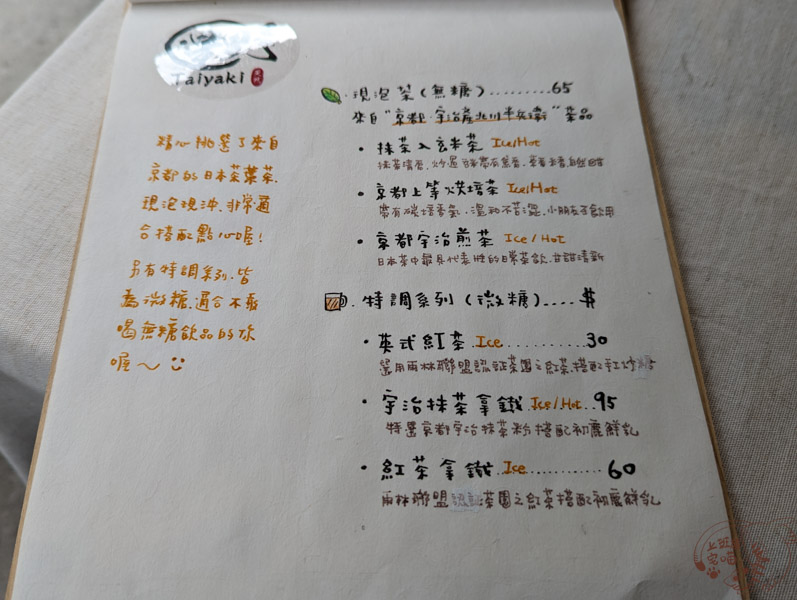 Taiyaki
精心挑選了來自
京都的日本茶葉茶.
現泡現沖.非常適
合搭配點心喔!
另有特調系列.皆
為微糖.適合不敢
喝無糖飲品的你
喔～
現泡茶(無糖).........65
來自"京都.宇治產北川半兵衛"茶品
抹茶入玄米茶 Ice/Hot
京都上等火烘培茶 Ice/Hot
帶有碳培香氣.溫和不苦澀.小朋友可飲用
京都宇治煎茶 Ice/Hot
日本茶中最具代表性的日常茶飲.甘甜清新
特調系列(微糖)....$
英式紅茶 Ice..........30
選用雨林聯盟認証茶園之紅茶.搭配手工炒糖
宇治抹茶拿鐵 Ice/Hot..95
特選京都宇治抹茶粉搭配初鹿鮮乳
紅茶拿鐵 Ice...........60
雨林聯盟認証茶園之紅茶搭配初鹿鮮乳